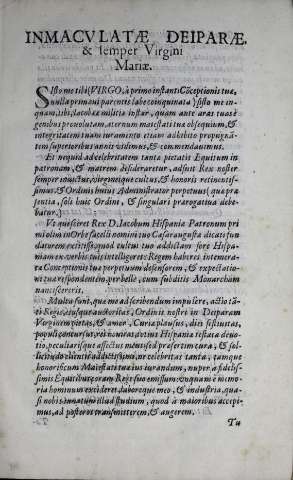 INMACVLATÆ, DEIPARÆ,
& semper Virgini
Mariæ.
Sisto me tibi (VIRGO, à primo instanti Cõceptionis tuæ,
nulla primævi parentis labe coinquinata) sisto me in-
quam, tibi, Iacobææ militiæ instar, quam ante aras tuas
genibus provolutam, æternum maiestati tuæ obsequium, &
integritatem tuam iuramento etiam adhibito propugnã-
tem superioribus annis vidimus, & commendavimus.
Et nequid ad celebritatem tanta pietatis Equitum in
patronum, & matrem desideraretur, adfuit Rex noster
semper invictus, virgineique cultus, & honoris retinentis-
simus, & Ordinis huius Administrator perpetuus (quo præ-
sentia, soli huic Ordini, & singulari prærogativa
debatur.)
Vt quiesceret Rex D. Iacobum Hispaniæ Patronum pri
mi olim in Orbe sacelli nomini tuo Cæsaraugusta dicati fun
datorem extitisse, quod cultui tuo addictam fore Hispa-
niam ex verbis tuis intelligeret: Regem haberes intemera-
tæ Conceptionis tuæ perpetuum defensorem, & expectatio-
ni tuæ respondentem, perbelle, cum subditis Monarcham
nancisceris.
Multa sunt, quæ me ad scribendum impulere, actio tã-
ti Regis, eiusque auctoritas, Ordinis nostri in Deiparam
Virginem pietas, & amor, Curia plausus, dies festivitas,
populi concursus, rei novitas, divini Hispaniæ testata devo-
tio, peculiarisque affectus mentis: ed præsertim cura, & sol-
licitudo clientis addictissimi, ne celebritas tanta, tamque
honorificum Maiestati tuæ iusiurandum, nuper à fidelis-
simis Equitibus, coram Rege suo emissum, unquam è memo-
ria hominum excideret, laboreque meo, & industria, qua-
si nobis innatum illud studium, quod à maioribus accepi-
mus, ad posteros transmitterem, & augerem.
Tu